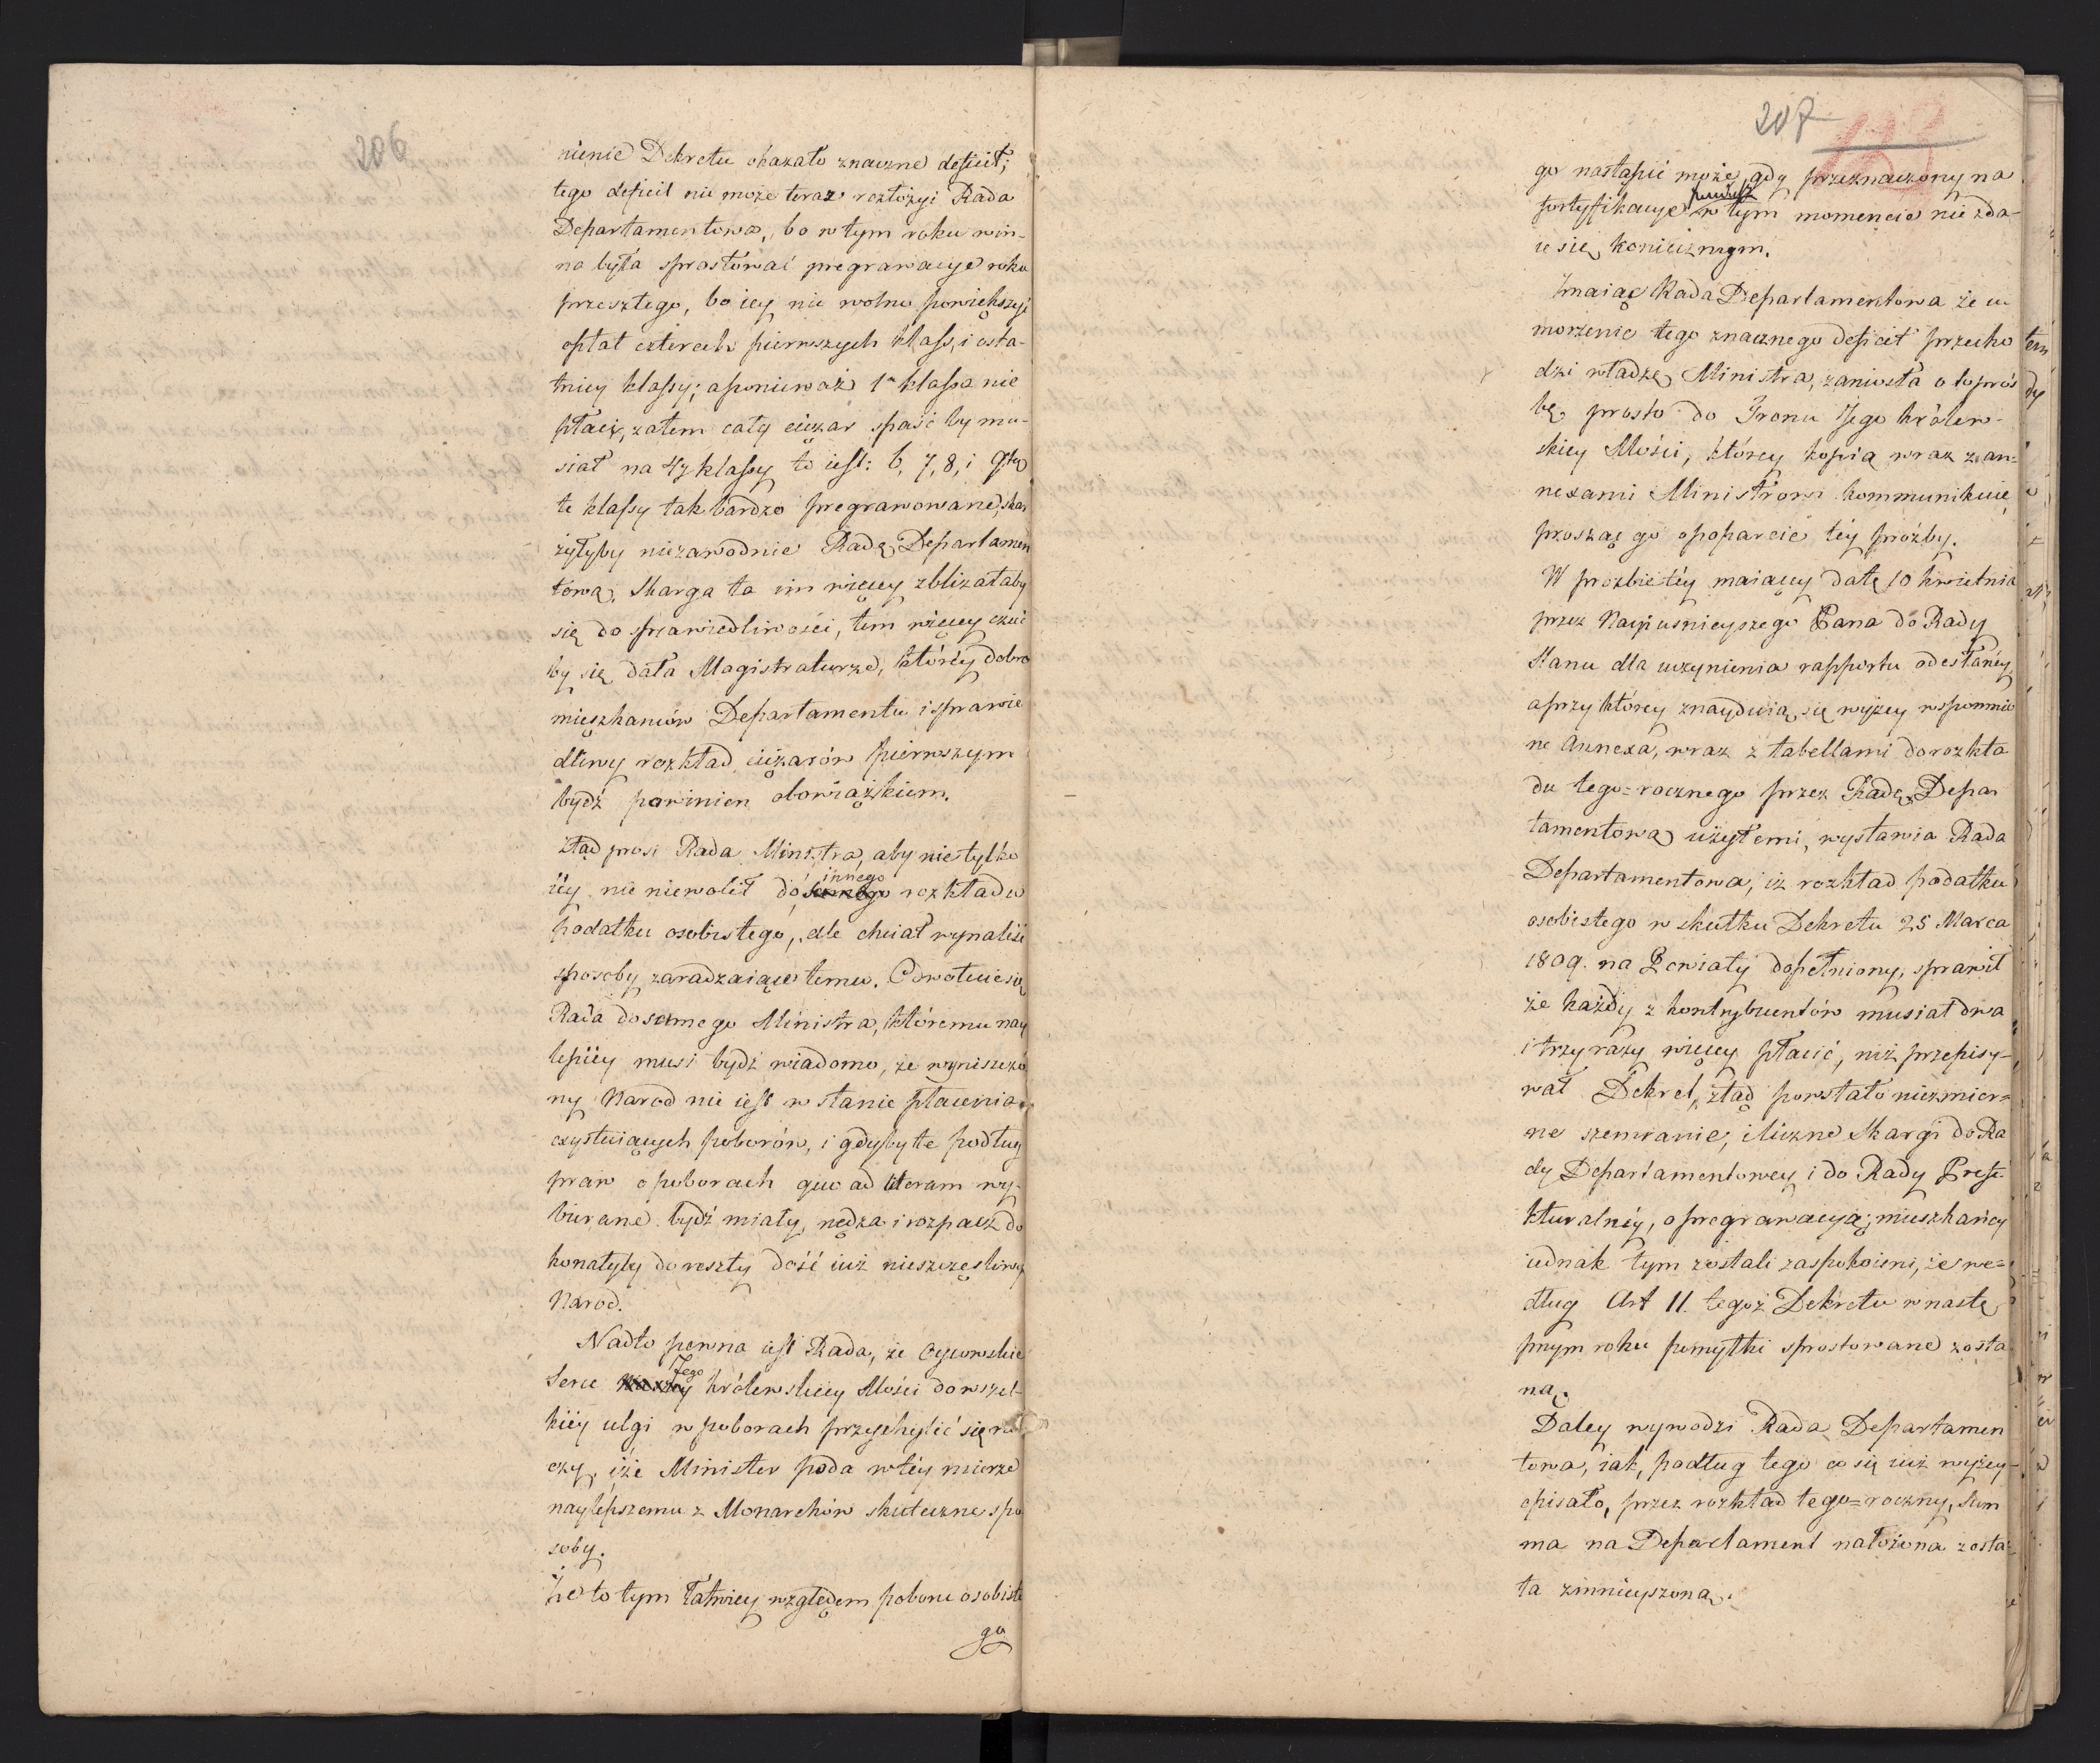 206
nienie Dekretu okazało znaczne deficit;
tego deficit nie może teraz rozłożyć Rada
Departamentowa, bo w tym roku win-
na była sprostować pregrawacye roku
przeszłego, bo iey nie wolno powiększyć
opłat czterech pierwszych klass, i osta-
tniey klassy; a ponieważ 1a klassa nie
płaci, zatem cały ciężar spaść by mu-
siał na 4y klassy to iest: 6, 7, 8, i 9tą
te klassy tak bardzo pregrawowane, skar
żyłyby niezawodnie Radę Departamen
tową. Skarga ta im więcey zbliżałaby
się do sprawiedliwości, tem więcey czuć
by się dała Magistraturze, któréy dobro
mieszkańców Departamentu i sprawie
dliwy rozkład ciężarów pierwszym
bydź powinien obowiązkiem.
Ztąd prosi Rada Ministra, aby nie tylko
iéy nie niewolił do innego rozkładu
podatku osobistego, ale chciał wynaliść
sposoby zaradzaiące temu. Odwołuie się
Rada do samego Ministra, któremu nay
lepiéy musi bydź wiadomo, że wyniszczo
ny Naród nie iest w stanie płacenia
exystuiących poborów, i gdyby te podług
praw o poborach quo ad literam wy-
bierane bydź miały, nędza i rozpacz do
konałyby do reszty dość iuż nieszczęśliwy
Naród.
Nadto pewna iest Rada, że Oycowskie
Serce Jego Królewskiéy Mości do wszel-
kiéy ulgi w poborach przychylić się ra
czy, iże Minister poda w téy mierze
naylepszemu z Monarchów skuteczne spo
soby.
że to tym łatwiey względem poboru osobiste
go
207
go nastąpić może, gdy przeznaczony na
fortyfikacye fundusz w tym momencie nie zda-
ie się koniecznym.
Znaiąc Rada Departamentowa że u
morzenie tego znacznego deficit przecho
dzi władzę Ministra, zaniosła o to proś
bę prosto do Tronu Jego Królew-
skiey Mości, którey kopią wraz z an-
nexami Ministrowi kommunikuie,
prosząc go o poparcie téy proźby.
W prozbie téy maiącey datę 10 kwietnia
przez Nayiaśnieyszego Pana do Rady
Stanu dla uczynienia rapportu odesłanéy
a przy którey znayduią się wyżey wspomnio
ne Annexa, wraz z tabellami do rozkła
du tego=rocznego przez Radę Depar
tamentową użytemi, wystawia Rada
Departamentowa, iż rozkład podatku
osobistego w skutku Dekretu 25 Marca
1809. na Powiaty dopełniony, sprawił
że każdy z kontrybuentów musiał dwa
i trzy razy więcey płacić, niż przepisy-
wał Dekret, ztąd powstało niezmier=
ne szemranie, i liczne Skargi do Ra
dy Departamentowey i do Rady Prefe
kturalnéy, o pregrawacyą; mieszkańcy
iednak tym zostali zaspokoieni, że we=
dług Art 11. tegoż Dekretu w nastę
pnym roku pomyłki sprostowane zosta
ną.
Daley wywodzi Rada Departamen
towa, iak, podług tego co się iuż wyżey
opisało, przez rozkład tego=roczny, Sum
ma na Departament nałożona zosta
ła zmnieyszoną.